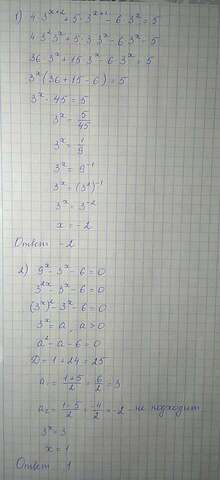 1) 4·3^(x+2) + 5·3^(x+1) - 6·3^x = 5
4·3²·3^x + 5·3·3^x - 6·3^x = 5
36·3^x + 15·3^x - 6·3^x = 5
3^x(36+15-6) = 5
3^x·45 = 5
3^x = 5/45
3^x = 1/9
3^x = 9^(-1)
3^x = (3²)^(-1)
3^x = 3^(-2)
x = -2
Ответ: -2
2) 9^x - 3^x - 6 = 0
3^(2x) - 3^x - 6 = 0
(3^x)² - 3^x - 6 = 0
3^x = a, a>0
a² - a - 6 = 0
D = 1 + 24 = 25
a₁ = (1+5)/2 = 6/2 = 3
a₂ = (1-5)/2 = -4/2 = -2 - не подходит
3^x = 3
x = 1
Ответ: 1